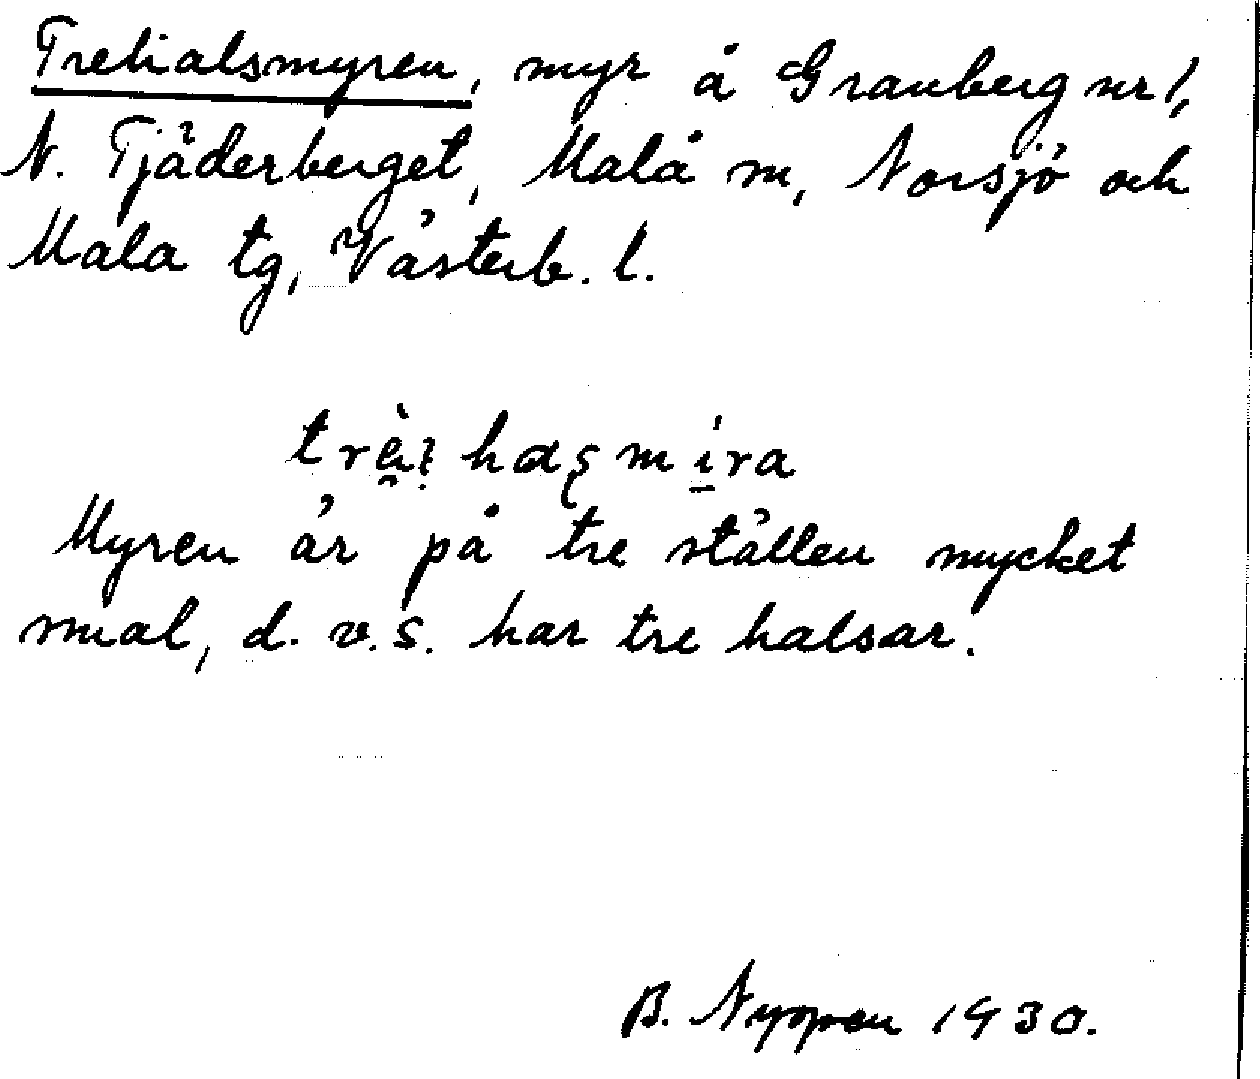 Trehalsmyren, myr å Granberg nr 1,
N. Tjäderberget, Malå sn, Norsjö och
Mala tg, Västerb. l.
myra
Myren är på tre ställen mycket
smal, d. v. s. har tre halsar.
B. Nyppen 1930.